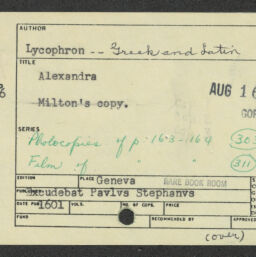 AUTHOR
Lycophron -- Greek and Latin
TITLE
Alexandra
AUG 16
Milton's copy.
SERIES
Photocopies of p. 163-164 (303
Film of " " (311)
EDITION PLACE Geneva
RARE BOOK ROOM
PUBLISHER Excudebat Pavlvs Stephanvs
DATE 1601 VOLS. NO. OF COPIES
FUND RECOMMENDED BY APPROVED
(over)